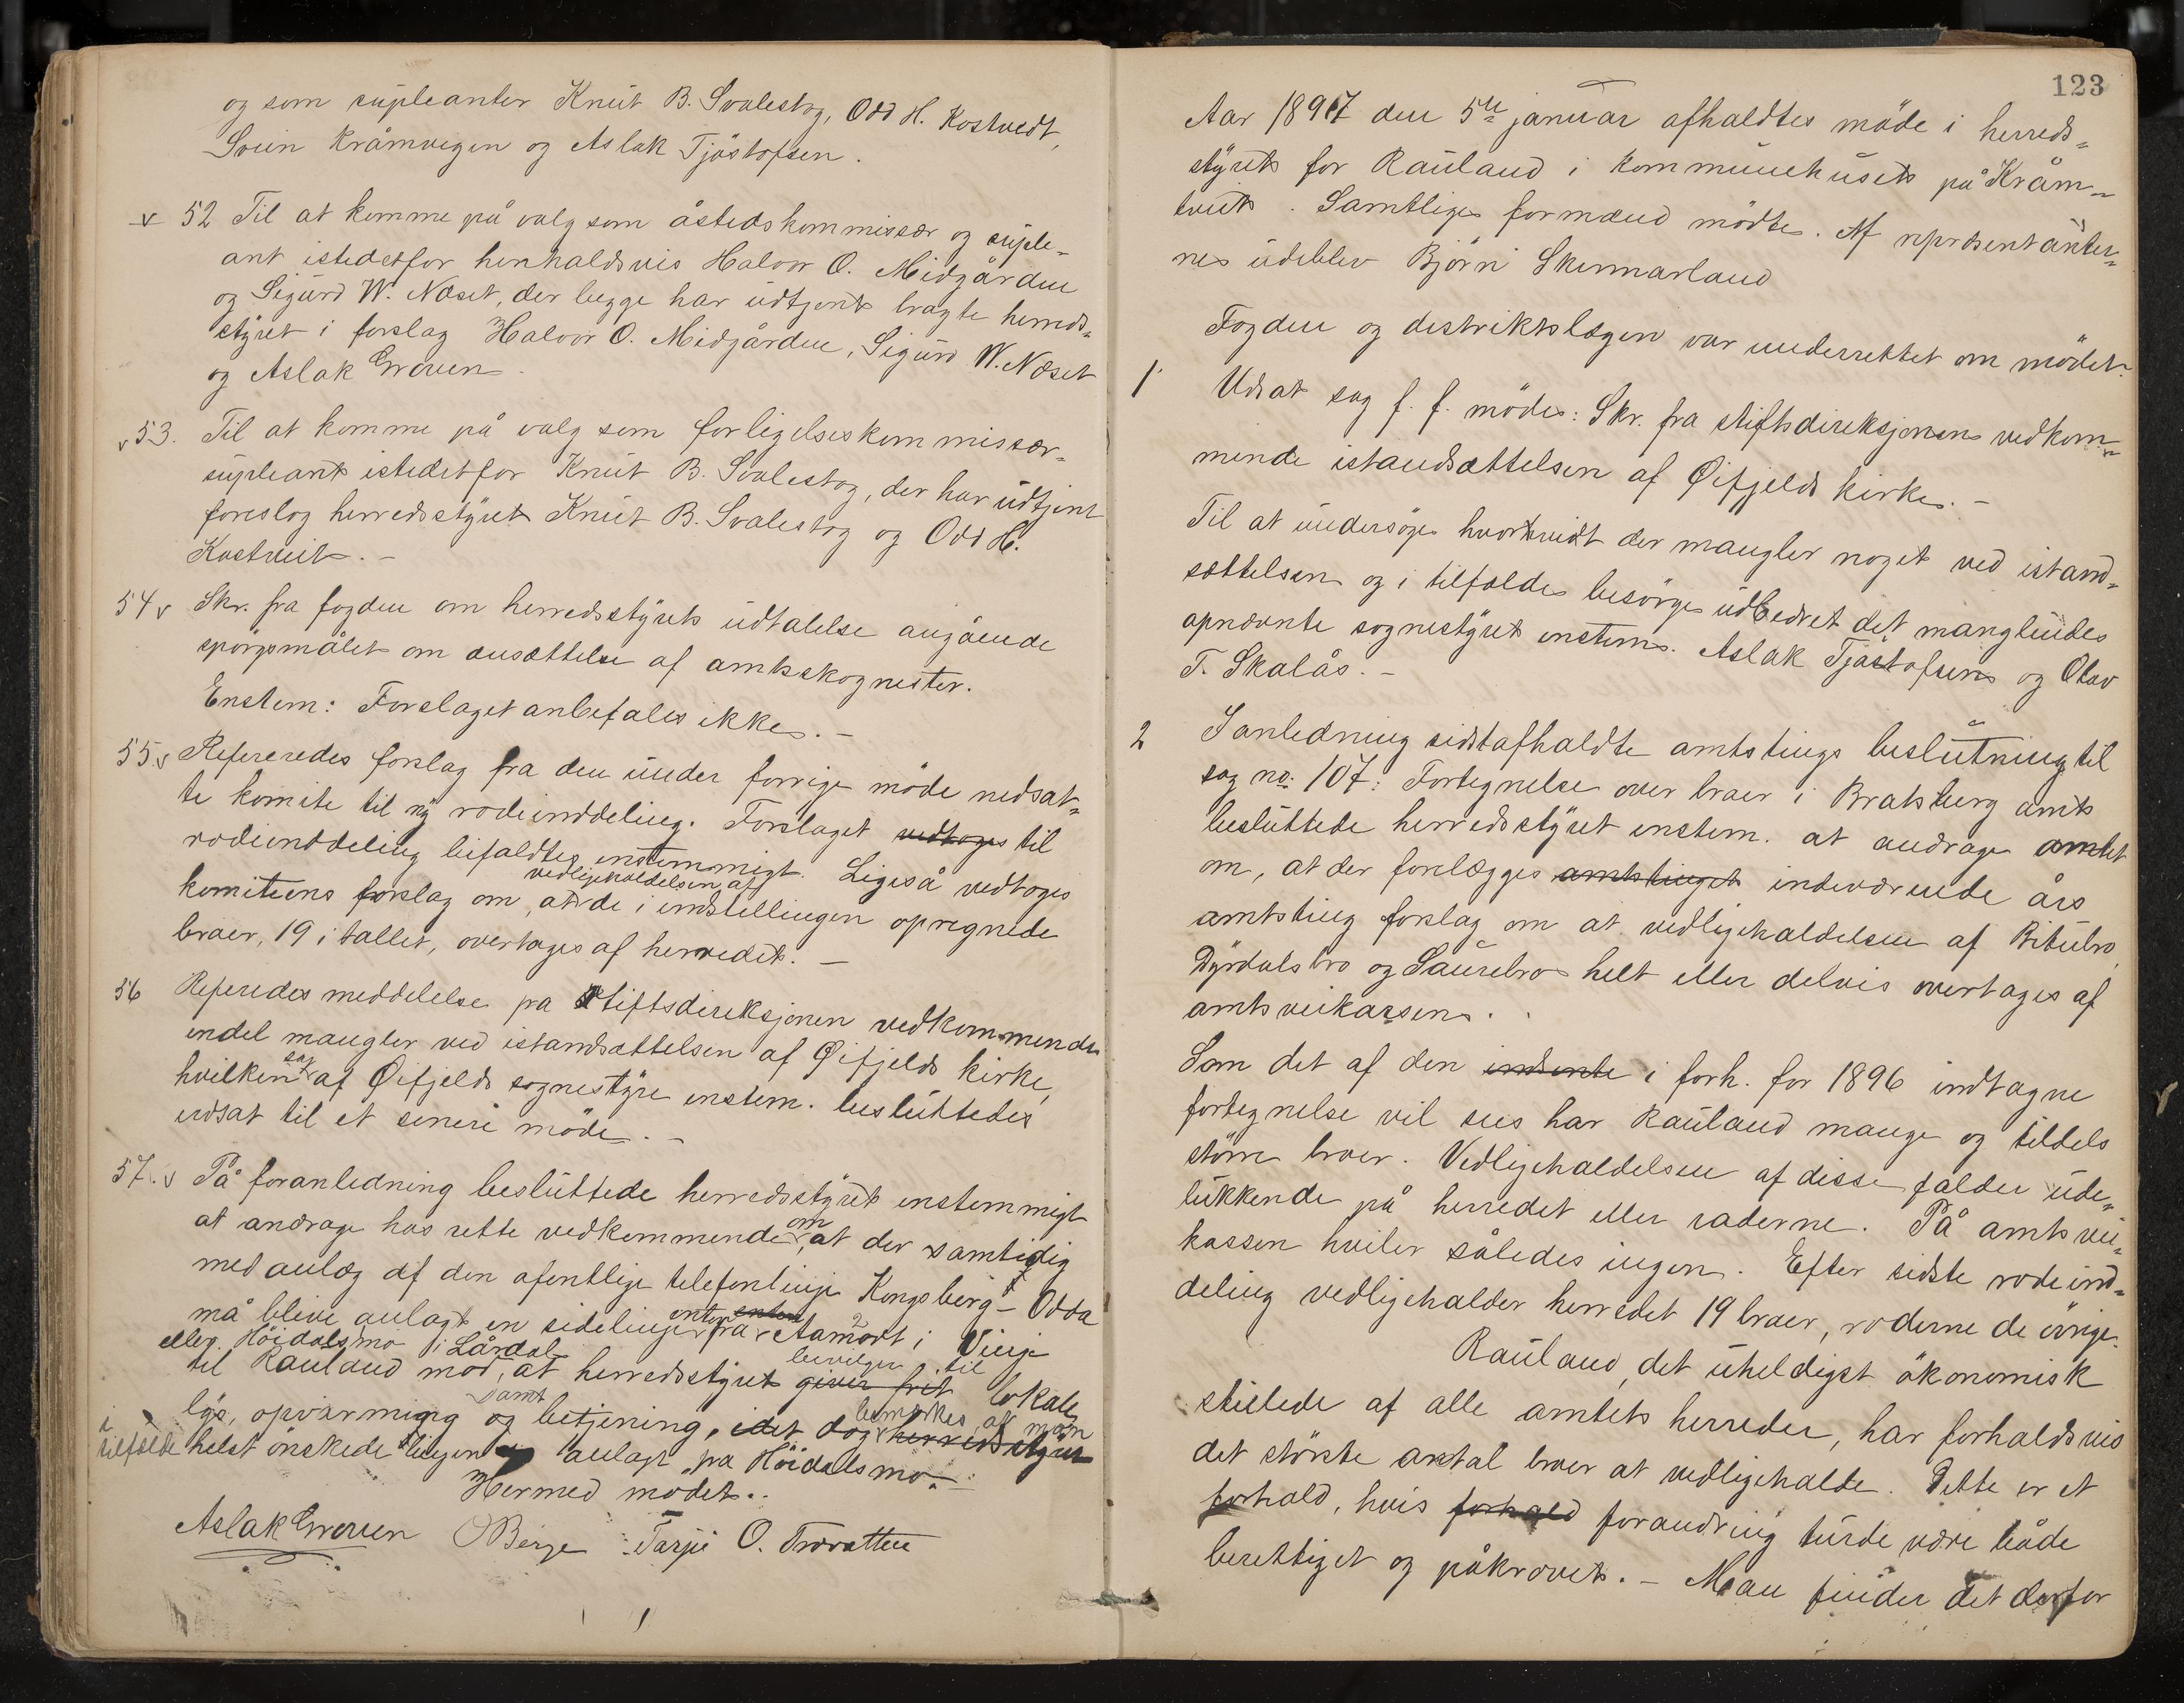 og som supleanter Knut B. Svalestog, Odd H. Kostvedt,
Svein Kråmvegen og Aslak Tjöstofsen.
v 52 Til at komme på valg som åstedskommissær og suple-
ant istedetfor henholdsvis Halvor O. Midgården
og Sigurd W. Næset, der begge har udtjent bragte herreds-
styret i forslag Halvor O. Midgården, Sigurd W. Næset
og Aslak Groven.
v 53. Til at komme på valg som forligelseskommissær-
supleant istedetfor Knut B. Svalestog, der har udtjent
foreslog herredsstyret Knut B. Svalestog og Odd H.
Kostveit. -
54 v Skr. fra fogden om herredsstyrets udtalelse angående
spörgsmålet om ansættelse af amtsskogmester.
Enstem: Forslaget anbefales ikke. -
55 v Refereredes forslag fra den under forrige möde nedsat-
te komite til ny rodeinddeling. Forslaget vedtoges til
rodeinddeling bifaldtes enstemmigt. Ligeså vedtoges
vedligeholdelsen af
komiteens forslag om, at de i indstillingen opregnede
broer, 19 i tallet, overtages af herredet. -
56 Referedes meddelelse fra Stiftsdireksjonen vedkommende
endel mangler ved istandsættelsen af Øifjelds kirke,
sag
hvilken af Øifjelds sognestyre enstem. besluttedes
udsat til et senere möde. -
57. v På foranledning besluttede herredsstyret enstemmigt
om
at andrage hos rette vedkommende, at der samtidig
med anlæg af den ofentlige telefonlinje Kongsberg - Odda
må blive anlagt en sidelinje enten fra Åamodt i Vinje
eller Höidalsmo i Lårdal
til Rauland mod, at herredsstyret giver frit lokale
bevilger til
lys, opvarming samt og betjening, idet dog herredsstyret
bemærkes, at man
i tilfælde helst önskede linjen anlagt fra Höidalsmo. -
Hermed mödet..
Aslak Groven OBerge Tarjei O. Trovatten
123
Aar 1897 den 5te januar afholdtes möde i herreds-
styret for Rauland i kommunehuset på Kråm-
tveit. Samtlige formænd mödte. Af repræsentanter-
nes udeblev Björn Skinnarland
Fogden og distriktslægen var underrettet om mödet.
1 Udsat sag f. f. möde: Skr. fra stiftsdireksjonen vedkom-
mende istandsættelsen af Øifjelds kirke. -
Til at undersöge hvorvidt der mangler noget ved istand-
sættelsen og i tilfælde besörge udbedret det manglende
opnævnte sognestyret enstem. Aslak Tjöstofsen og Olav
T. Skalås. -
2 I anledning sidstafholdte amtstings beslutning til
sag no. 107: Fortegnelse over broer i Bratsberg amt
besluttede herredsstyret enstem. at andrage amtet
om, at der forelægges amtstinget indeværende års
amtsting forslag om at vedligeholdelsen af Bitubro,
Dyrdalsbro og Saurebro helt eller delvis overtages af
amtsveikassen.
Som det af den indsendte i forh. for 1896 indtagne
fortegnelse vil sees har Rauland mange og tildels
större broer. Vedligeholdelsen af disse falder ude-
lukkende på herredet eller roderne. På amtsvei-
kassen hviler således ingen. Efter sidste rodeind-
deling vedligeholder herredet 19 broer, roderne de övrige.
Rauland, det uheldigst ökonomisk
stillede af alle amtets herreder, har forholdsvis
det störste antal broer at vedligeholde. Dette er et
forhold, hvis forhold forandring turde være både
berettiget og påkrævet. - Man finder det derfor